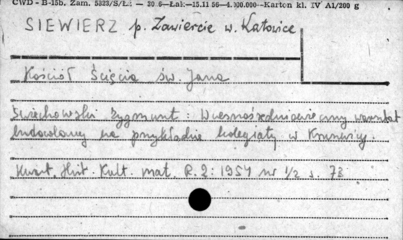 CWD - B-15b. Zam. 5823/S/Lł — 20 6 — Łak — 15.11 56 — 4.000.000 — Karton kl. IV A1/200 g
SIEWIERZ p. Zawiercie w. Katowice
Kościół Ścięcia św. Jana
Świechowski Zygmunt: Wczesnośredniowieczny warsztat
budowlany na przykładzie kolegiaty w Kruszwicy.
Kwart. Hist. Kult. mat. R. 2: 1954 nr 1/2 s. 73